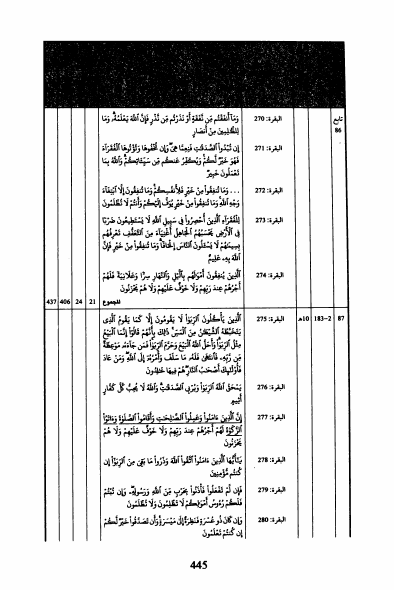 تابع
86
البقرة: 270
وَمَآ أَنفَقْتُم مِّن نَّفَقَةٍ أَوْ نَذَرْتُم مِّن نَّذْرٍ فَإِنَّ ٱللَّهَ يَعْلَمُهُۥ وَمَا
لِلظَّـٰلِمِينَ مِنْ أَنصَارٍ
البقرة: 271
إِن تُبْدُوا۟ ٱلصَّدَقَـٰتِ فَنِعِمَّا هِىَ وَإِن تُخْفُوهَا وَتُؤْتُوهَا ٱلْفُقَرَآءَ
فَهُوَ خَيْرٌ لَّكُمْ وَيُكَفِّرُ عَنكُم مِّن سَيِّـَٔاتِكُمْ وَٱللَّهُ بِمَا
تَعْمَلُونَ خَبِيرٌ
البقرة: 272
... وَمَا تُنفِقُوا۟ مِنْ خَيْرٍ فَلِأَنفُسِكُمْ وَمَا تُنفِقُونَ إِلَّا ٱبْتِغَآءَ
وَجْهِ ٱللَّهِ وَمَا تُنفِقُوا۟ مِنْ خَيْرٍ يُوَفَّ إِلَيْكُمْ وَأَنتُمْ لَا تُظْلَمُونَ
البقرة: 273
لِلْفُقَرَآءِ ٱلَّذِينَ أُحْصِرُوا۟ فِى سَبِيلِ ٱللَّهِ لَا يَسْتَطِيعُونَ ضَرْبًا
فِى ٱلْأَرْضِ يَحْسَبُهُمُ ٱلْجَاهِلُ أَغْنِيَآءَ مِنَ ٱلتَّعَفُّفِ تَعْرِفُهُم
بِسِيمَـٰهُمْ لَا يَسْـَٔلُونَ ٱلنَّاسَ إِلْحَافًا وَمَا تُنفِقُوا۟ مِنْ خَيْرٍ فَإِنَّ
ٱللَّهَ بِهِۦ عَلِيمٌ
البقرة: 274
ٱلَّذِينَ يُنفِقُونَ أَمْوَٰلَهُم بِٱلَّيْلِ وَٱلنَّهَارِ سِرًّا وَعَلَانِيَةً فَلَهُمْ
أَجْرُهُمْ عِندَ رَبِّهِمْ وَلَا خَوْفٌ عَلَيْهِمْ وَلَا هُمْ يَحْزَنُونَ
للجموع 21 24 406 437
87 2–183 10هـ
البقرة: 275
ٱلَّذِينَ يَأْكُلُونَ ٱلرِّبَوٰا۟ لَا يَقُومُونَ إِلَّا كَمَا يَقُومُ ٱلَّذِى
يَتَخَبَّطُهُ ٱلشَّيْطَـٰنُ مِنَ ٱلْمَسِّ ذَٰلِكَ بِأَنَّهُمْ قَالُوٓا۟ إِنَّمَا ٱلْبَيْعُ
مِثْلُ ٱلرِّبَوٰا۟ وَأَحَلَّ ٱللَّهُ ٱلْبَيْعَ وَحَرَّمَ ٱلرِّبَوٰا۟ فَمَن جَآءَهُۥ مَوْعِظَةٌ
مِّن رَّبِّهِۦ فَٱنتَهَىٰ فَلَهُۥ مَا سَلَفَ وَأَمْرُهُۥٓ إِلَى ٱللَّهِ وَمَنْ عَادَ
فَأُو۟لَـٰٓئِكَ أَصْحَـٰبُ ٱلنَّارِ هُمْ فِيهَا خَـٰلِدُونَ
البقرة: 276
يَمْحَقُ ٱللَّهُ ٱلرِّبَوٰا۟ وَيُرْبِى ٱلصَّدَقَـٰتِ وَٱللَّهُ لَا يُحِبُّ كُلَّ كَفَّارٍ
أَثِيمٍ
البقرة: 277
إِنَّ ٱلَّذِينَ ءَامَنُوا۟ وَعَمِلُوا۟ ٱلصَّـٰلِحَـٰتِ وَأَقَامُوا۟ ٱلصَّلَوٰةَ وَءَاتَوُا۟
ٱلزَّكَوٰةَ لَهُمْ أَجْرُهُمْ عِندَ رَبِّهِمْ وَلَا خَوْفٌ عَلَيْهِمْ وَلَا هُمْ
يَحْزَنُونَ
البقرة: 278
يَـٰٓأَيُّهَا ٱلَّذِينَ ءَامَنُوا۟ ٱتَّقُوا۟ ٱللَّهَ وَذَرُوا۟ مَا بَقِىَ مِنَ ٱلرِّبَوٰٓا۟ إِن
كُنتُم مُّؤْمِنِينَ
البقرة: 279
فَإِن لَّمْ تَفْعَلُوا۟ فَأْذَنُوا۟ بِحَرْبٍ مِّنَ ٱللَّهِ وَرَسُولِهِۦ وَإِن تُبْتُمْ
فَلَكُمْ رُءُوسُ أَمْوَٰلِكُمْ لَا تَظْلِمُونَ وَلَا تُظْلَمُونَ
البقرة: 280
وَإِن كَانَ ذُو عُسْرَةٍ فَنَظِرَةٌ إِلَىٰ مَيْسَرَةٍ وَأَن تَصَدَّقُوا۟ خَيْرٌ لَّكُمْ
إِن كُنتُمْ تَعْلَمُونَ
445